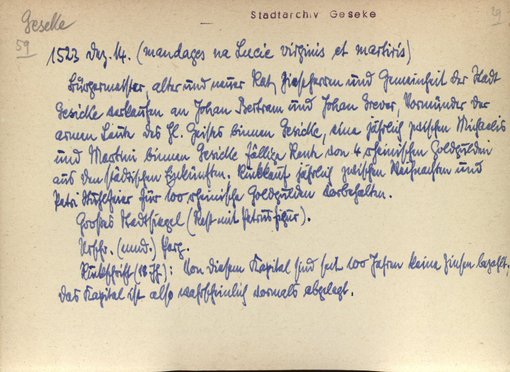 Geseke
Stadtarchiv Geseke
29
59
1523 Dez. 14. (mandages na Lucie virginis et martiris)
Bürgermeister, alter und neuer Rat, Giseherren und Gemeinheit der Stadt
Gesicke verkaufen an Johan Bertram und Johan Grever, Vormünder der
armen Leute des Hl. Geistes binnen Gesicke, eine jährlich zwischen Michaelis
und Martini binnen Gesicke fällige Rente von 4 rheinischen Goldgulden
aus den städtischen Einkünften. Rückkauf jährlich zwischen Weihnachten und
Petri Stuhlfeier für 100 rheinische Goldgulden vorbehalten.
Grosses Stadtsiegel (Rest mit Petrusfigur).
Urschr. (nnd.) Perg.
Rückschrift (18. Jh.): Von diesem Kapital sind seit 100 Jahren keine Zinsen bezahlt.
Das Kapital ist also wahrscheinlich vormals abgelegt.